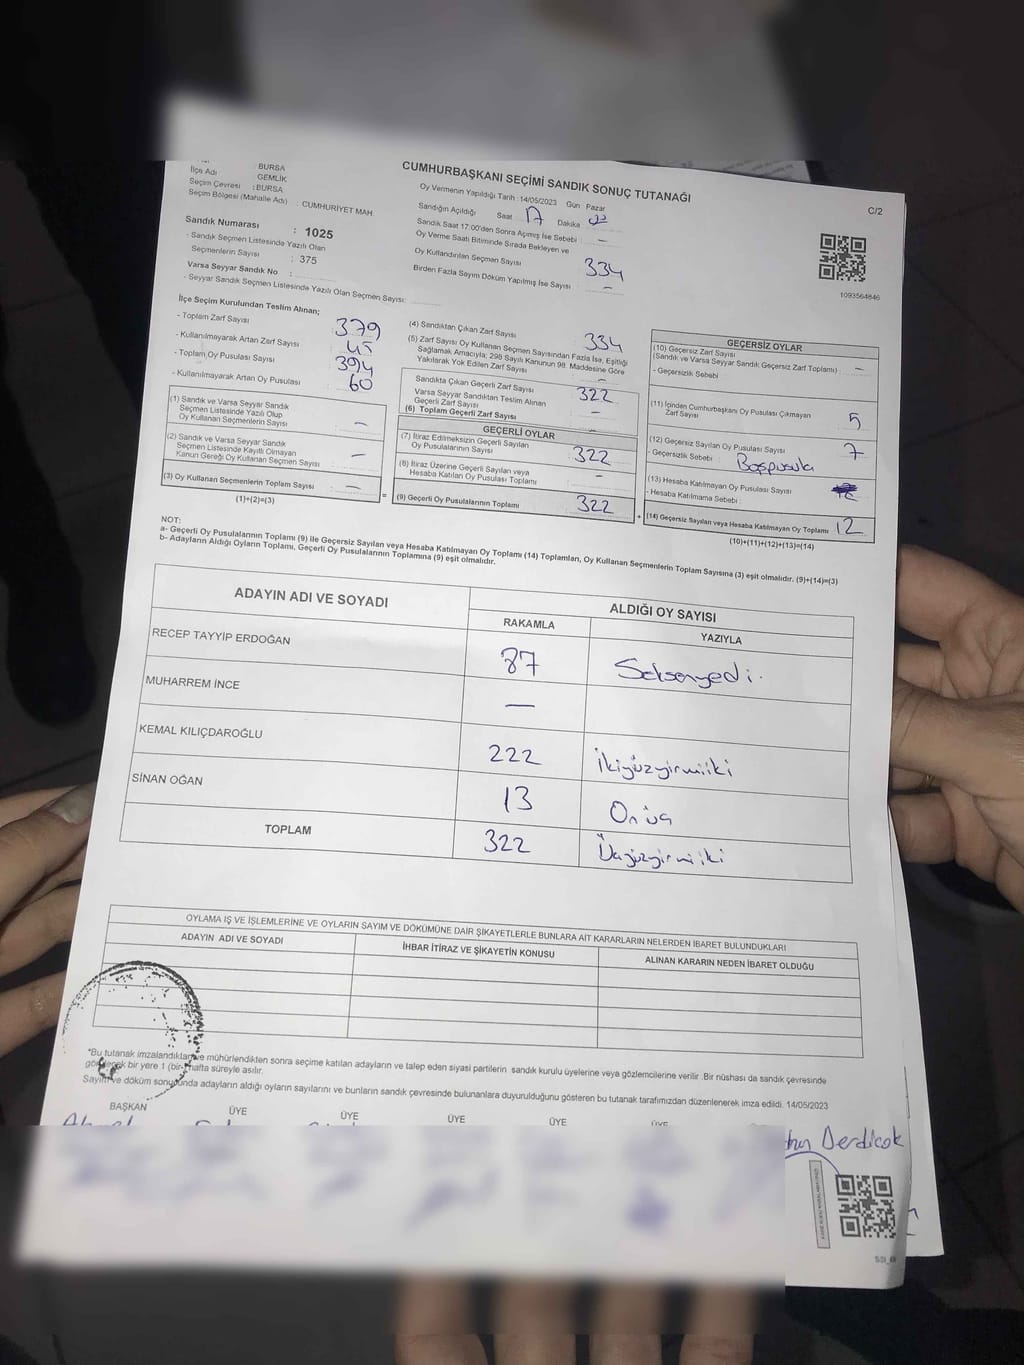 BURSA
İlçe Adı : GEMLİK
Seçim Çevresi : BURSA
Seçim Bölgesi (Mahalle Adı) : CUMHURİYET MAH.
CUMHURBAŞKANI SEÇİMİ SANDIK SONUÇ TUTANAĞI
C/2
Oy Vermenin Yapıldığı Tarih :14/05/2023 Gün Pazar
Sandığın Açıldığı Saat 17 Dakika
Sandık Saat 17:00'den Sonra Açımış İse Sebebi : —
Oy Verme Saati Bitiminde Sırada Bekleyen ve
Oy Kullandırılan Seçmen Sayısı 334
Birden Fazla Sayım Döküm Yapılmış İse Sayısı : —
1093564846
Sandık Numarası : 1025
- Sandık Seçmen Listesinde Yazılı Olan
Seçmenlerin Sayısı : 375
Varsa Seyyar Sandık No :
- Seyyar Sandık Seçmen Listesinde Yazılı Olan Seçmen Sayısı:
İlçe Seçim Kurulundan Teslim Alınan;
- Toplam Zarf Sayısı 379
- Kullanılmayarak Artan Zarf Sayısı 45
- Toplam Oy Pusulası Sayısı 394
- Kullanılmayarak Artan Oy Pusulası 60
(1) Sandık ve Varsa Seyyar Sandık
Seçmen Listesinde Yazılı Olup
Oy Kullanan Seçmenlerin Sayısı —
(2) Sandık ve Varsa Seyyar Sandık
Seçmen Listesinde Kayıtlı Olmayan
Kanun Gereği Oy Kullanan Seçmen Sayısı —
(3) Oy Kullanan Seçmenlerin Toplam Sayısı —
(1)+(2)=(3)
=
(4) Sandıktan Çıkan Zarf Sayısı 334
(5) Zarf Sayısı Oy Kullanan Seçmen Sayısından Fazla İse, Eşitliği
Sağlamak Amacıyla; 298 Sayılı Kanunun 98. Maddesine Göre
Yakılarak Yok Edilen Zarf Sayısı —
Sandıkta Çıkan Geçerli Zarf Sayısı 322
Varsa Seyyar Sandıktan Teslim Alınan
Geçerli Zarf Sayısı —
(6) Toplam Geçerli Zarf Sayısı
GEÇERLİ OYLAR
(7) İtiraz Edilmeksizin Geçerli Sayılan
Oy Pusulalarının Sayısı 322
(8) İtiraz Üzerine Geçerli Sayılan veya
Hesaba Katılan Oy Pusulası Toplamı —
(9) Geçerli Oy Pusulalarının Toplamı 322
+
GEÇERSİZ OYLAR
(10) Geçersiz Zarf Sayısı
(Sandık ve Varsa Seyyar Sandık Geçersiz Zarf Toplamı) : —
- Geçersizlik Sebebi
(11) İçinden Cumhurbaşkanı Oy Pusulası Çıkmayan
Zarf Sayısı 5
(12) Geçersiz Sayılan Oy Pusulası Sayısı 7
- Geçersizlik Sebebi : Boş pusula
(13) Hesaba Katılmayan Oy Pusulası Sayısı
- Hesaba Katılmama Sebebi :
(14) Geçersiz Sayılan veya Hesaba Katılmayan Oy Toplamı 12
(10)+(11)+(12)+(13)=(14)
NOT:
a- Geçerli Oy Pusulalarının Toplamı (9) ile Geçersiz Sayılan veya Hesaba Katılmayan Oy Toplamı (14) Toplamları, Oy Kullanan Seçmenlerin Toplam Sayısına (3) eşit olmalıdır. (9)+(14)=(3)
b- Adayların Aldığı Oyların Toplamı, Geçerli Oy Pusulalarının Toplamına (9) eşit olmalıdır.
ADAYIN ADI VE SOYADI
ALDIĞI OY SAYISI
RAKAMLA YAZIYLA
RECEP TAYYİP ERDOĞAN 87 Seksenyedi.
MUHARREM İNCE —
KEMAL KILIÇDAROĞLU 222 İkiyüzyirmiiki
SİNAN OĞAN 13 Onüç
TOPLAM 322 Üçyüzyirmiiki
OYLAMA İŞ VE İŞLEMLERİNE VE OYLARIN SAYIM VE DÖKÜMÜNE DAİR ŞİKAYETLERLE BUNLARA AİT KARARLARIN NELERDEN İBARET BULUNDUKLARI
ADAYIN ADI VE SOYADI İHBAR İTİRAZ VE ŞİKAYETİN KONUSU ALINAN KARARIN NEDEN İBARET OLDUĞU
*Bu tutanak imzalandıktan ve mühürlendikten sonra seçime katılan adayların ve talep eden siyasi partilerin sandık kurulu üyelerine veya gözlemcilerine verilir .Bir nüshası da sandık çevresinde
görülecek bir yere 1 (bir) hafta süreyle asılır.
Sayım ve döküm sonucunda adayların aldığı oyların sayılarını ve bunların sandık çevresinde bulunanlara duyurulduğunu gösteren bu tutanak tarafımızdan düzenlenerek imza edildi. 14/05/2023
BAŞKAN ÜYE ÜYE ÜYE ÜYE ÜYE
Derdicok